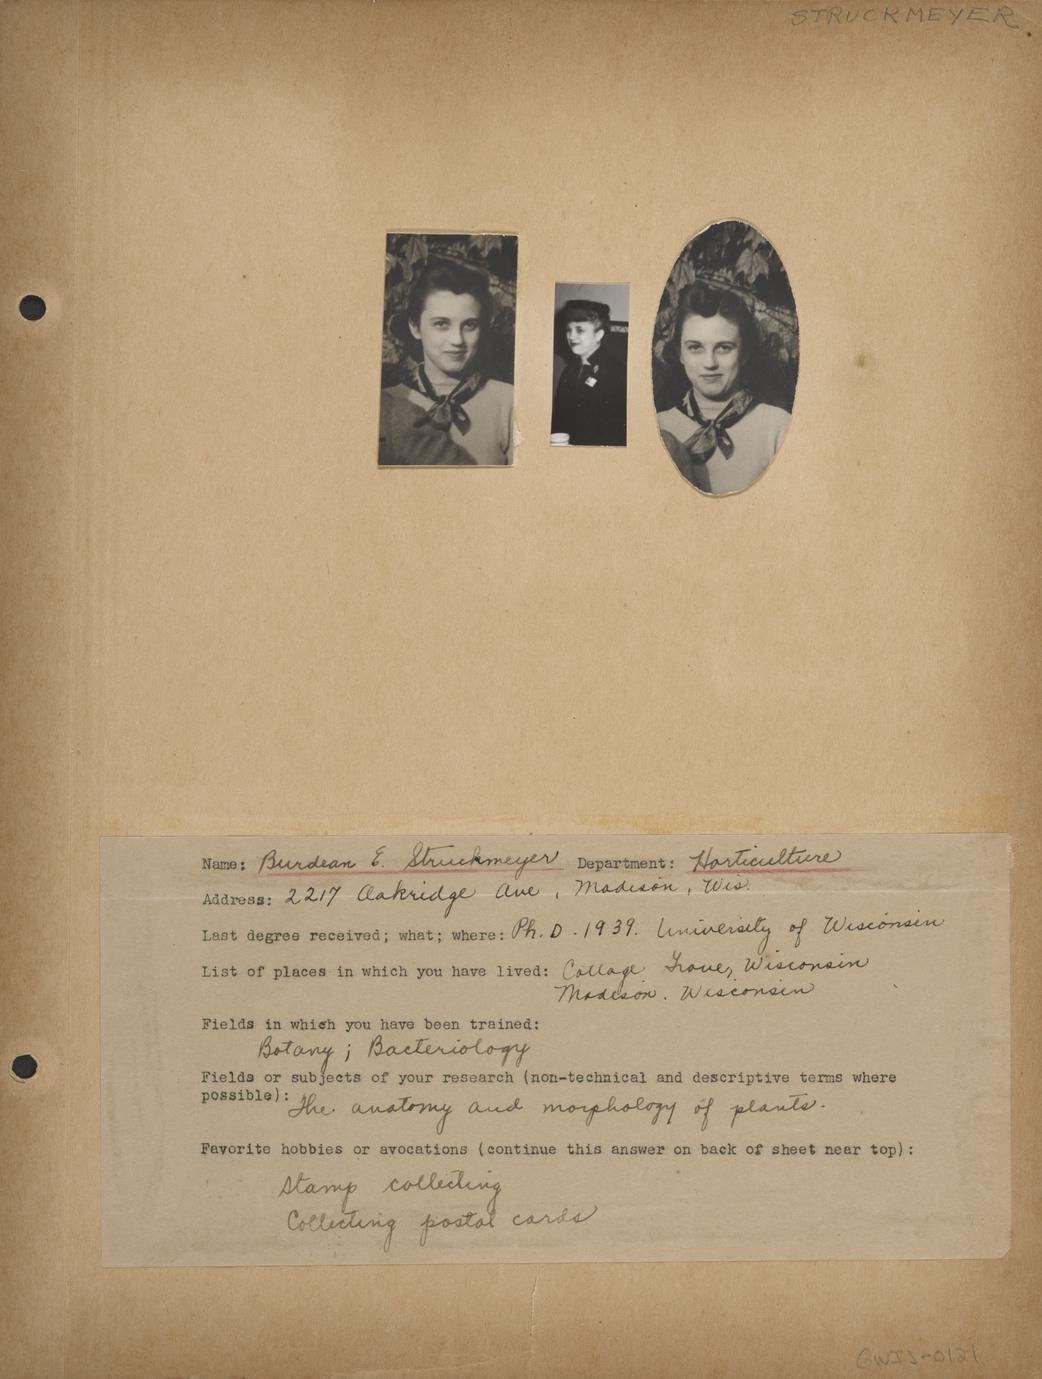 STRUCKMEYER
Name: Burdean E. Struckmeyer Department: Horticulture
Address: 2217 Oakridge Ave, Madison, Wis.
Last degree received; what; where: Ph.D. 1939. University of Wisconsin
List of places in which you have lived: Cottage Grove, Wisconsin
Madison. Wisconsin
Fields in which you have been trained:
Botany; Bacteriology
Fields or subjects of your research (non-technical and descriptive terms where
possible): The anatomy and morphology of plants.
Favorite hobbies or avocations (continue this answer on back of sheet near top):
Stamp collecting
Collecting postal cards
GWIS-0121